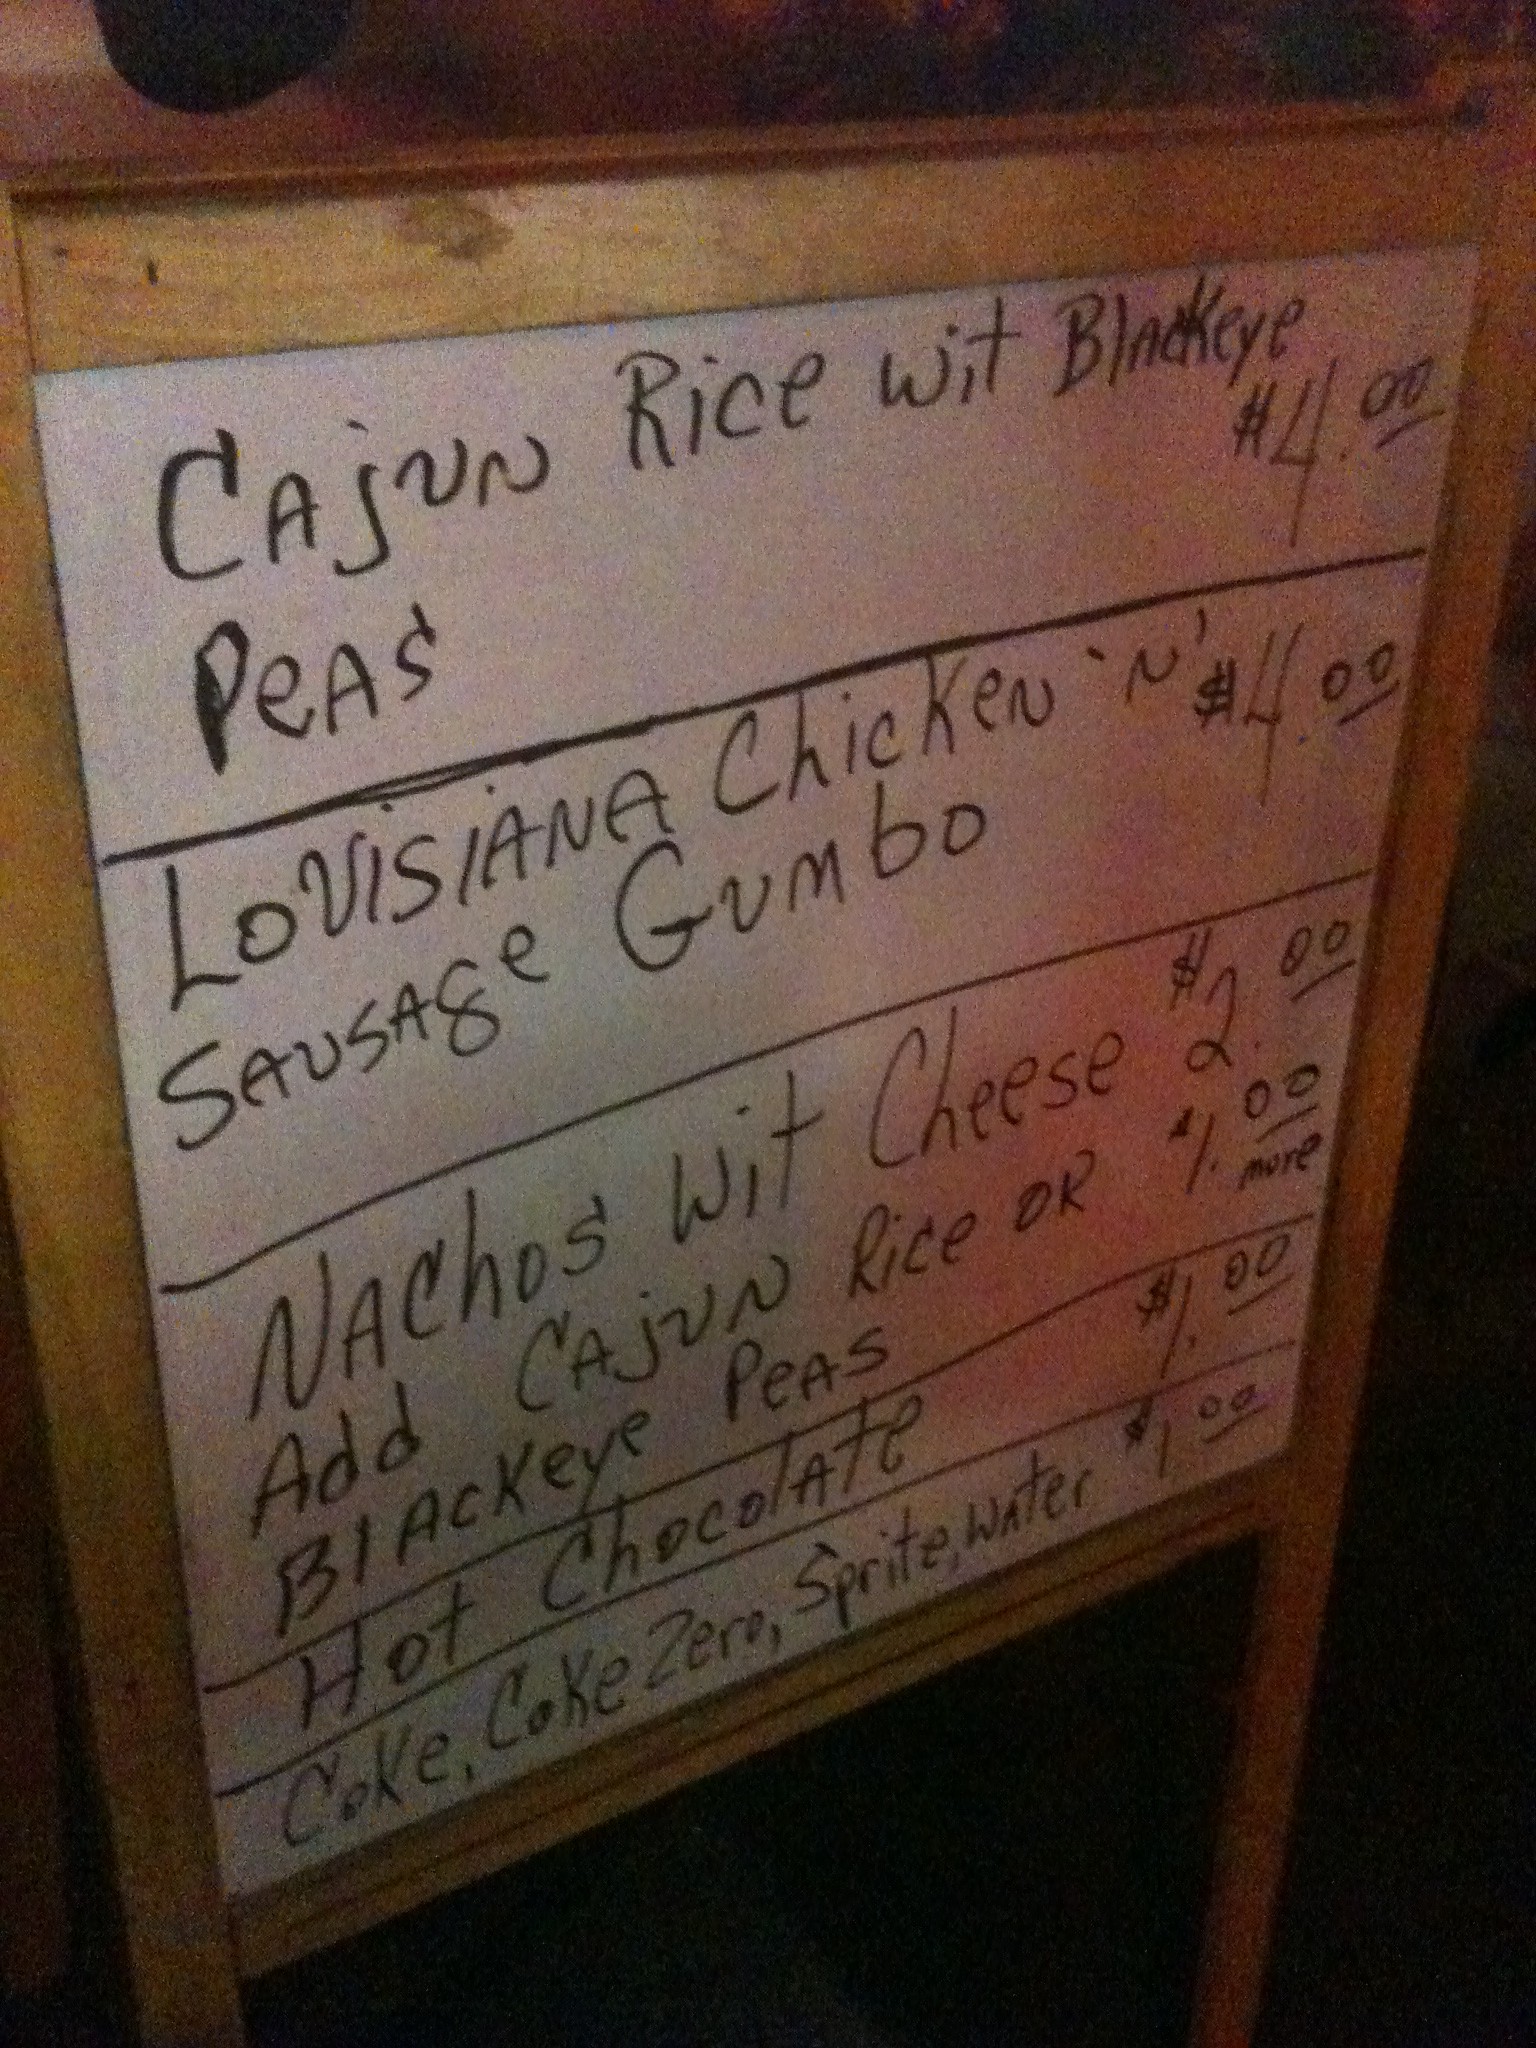 Cajun Rice wit Blackeye
Peas $4.00
Louisiana Chicken 'N' $4.00
Sausage Gumbo
Nachos wit Cheese $2.00
Add Cajun Rice or $1.00 more
Blackeye Peas
Hot Chocolate $1.00
Coke, Coke Zero, Sprite, Water $1.00